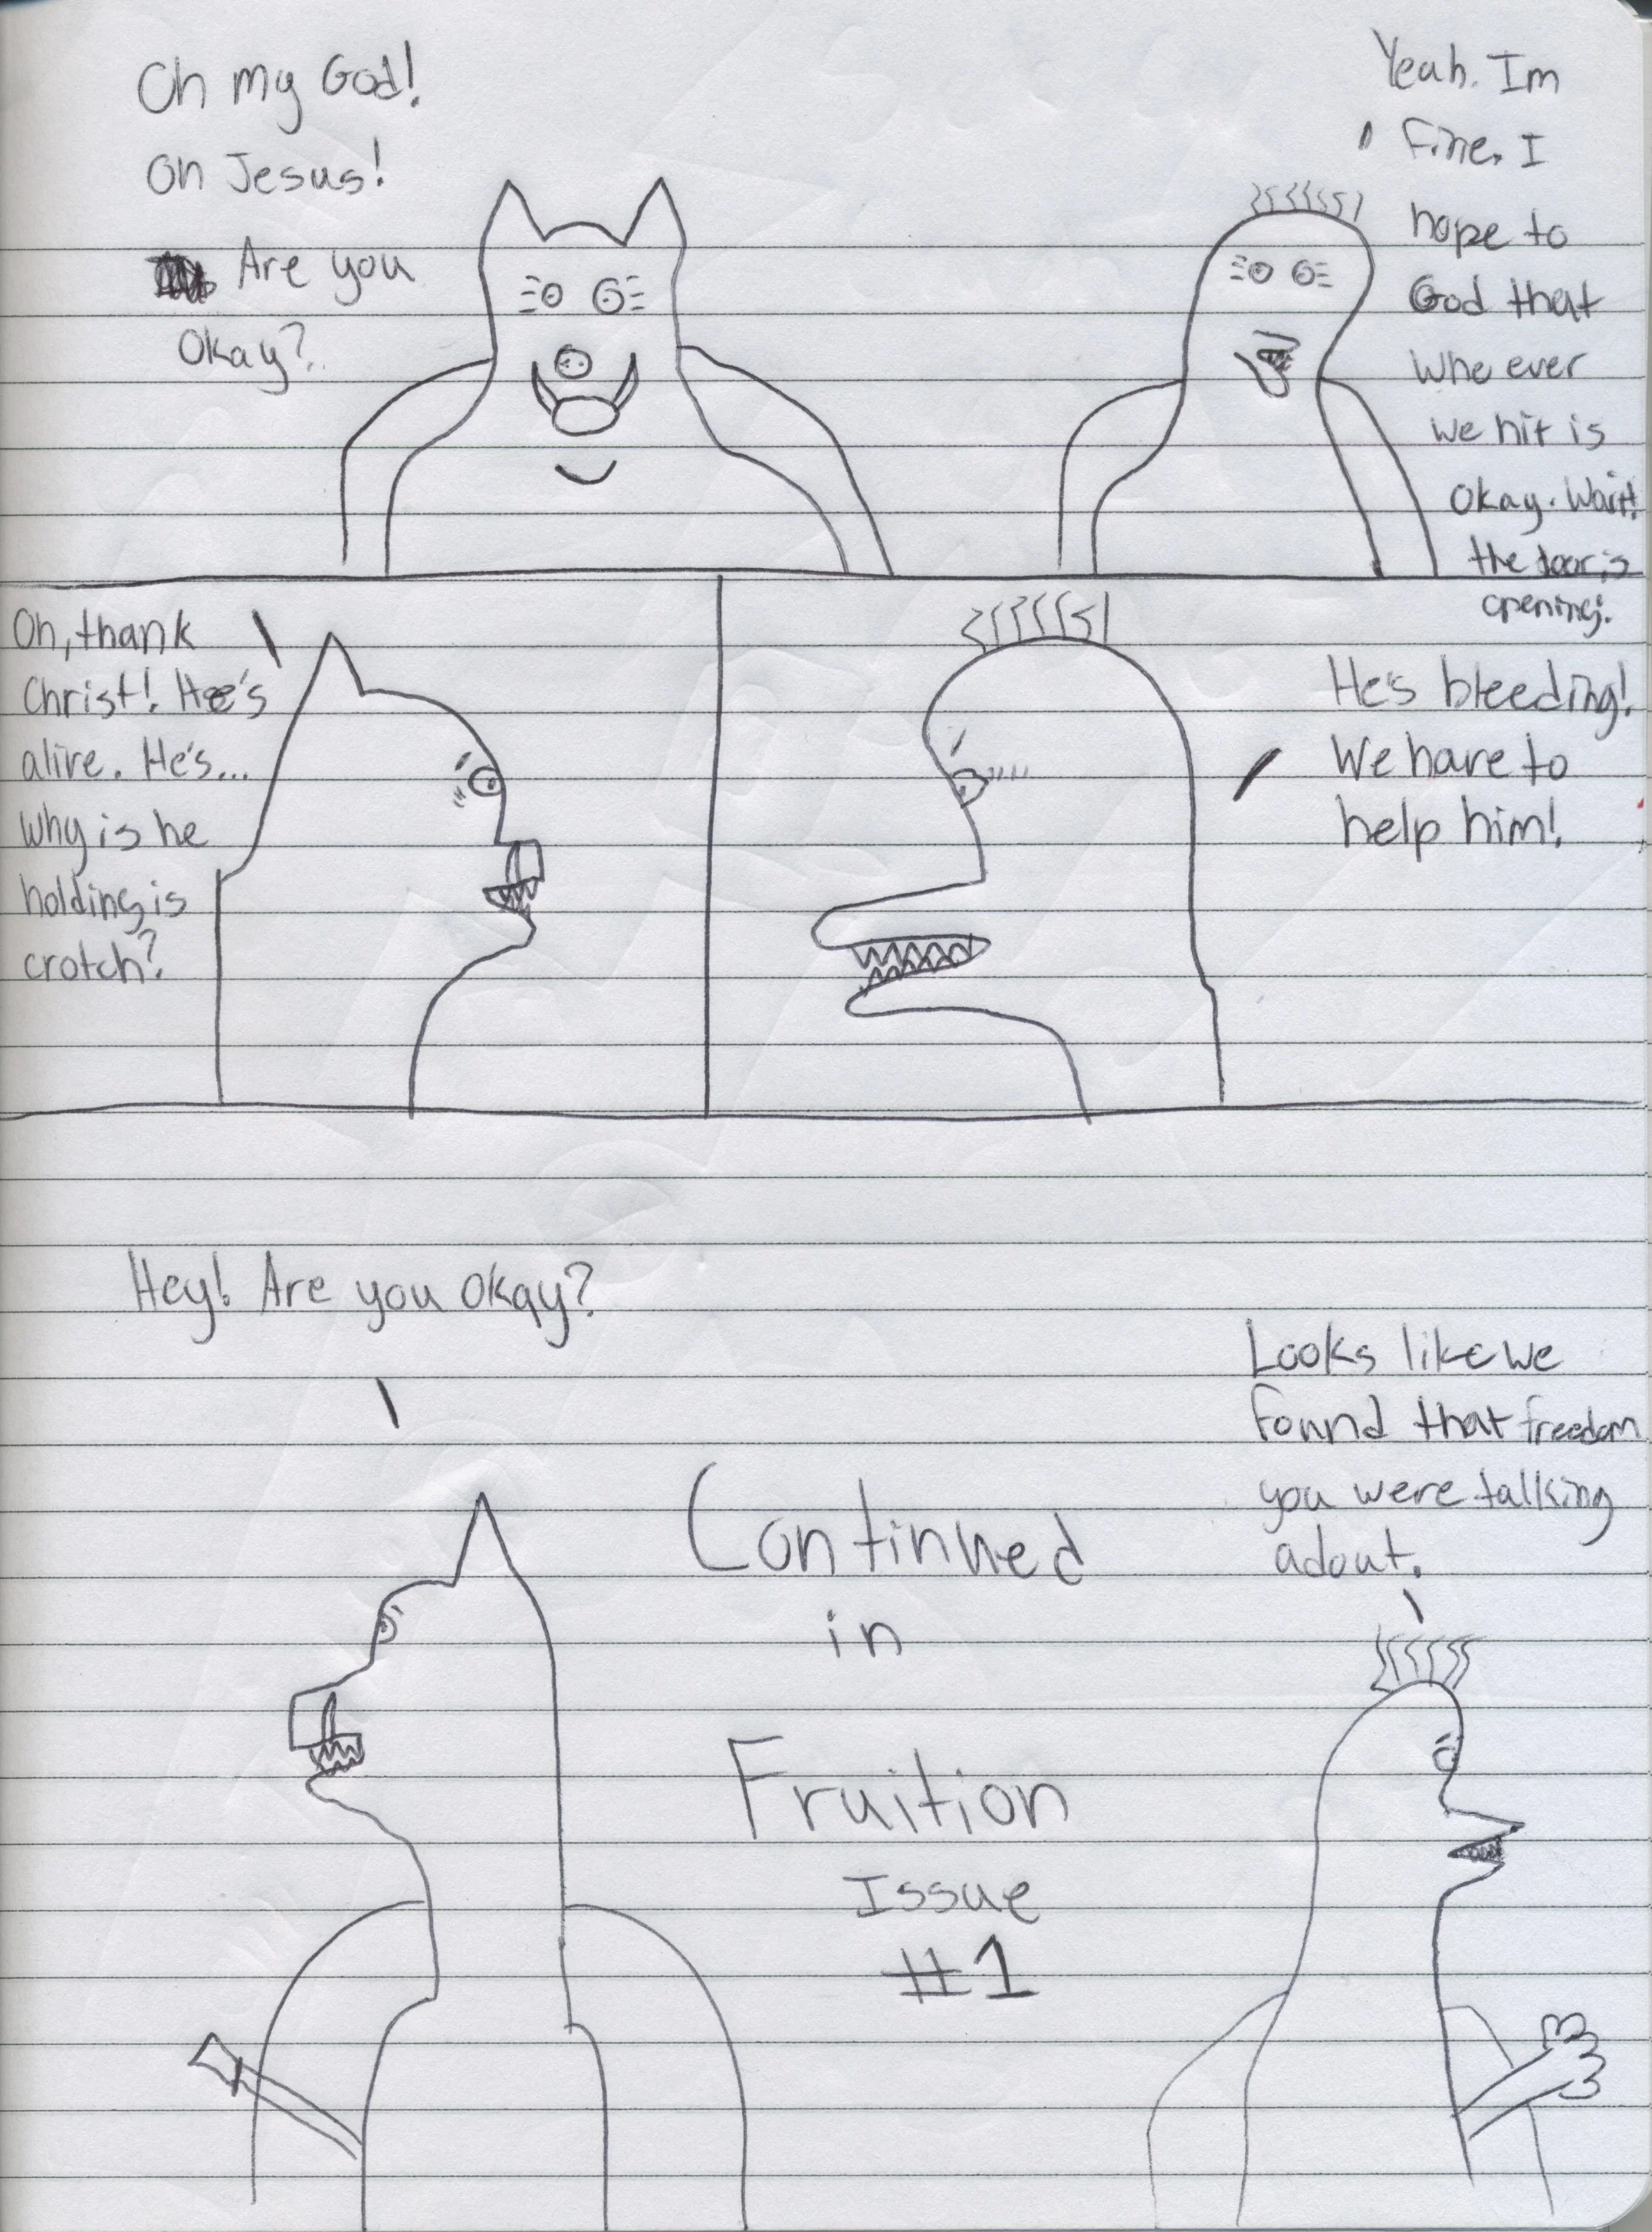 Oh my God!
Oh Jesus!
Are you
Okay?
Yeah. Im
fine. I
hope to
God that
who ever
we hit is
okay. Wait!
the door is
opening!
Oh, thank
Christ! He's
alive. He's...
why is he
holding is
crotch?
He's bleeding!
We have to
help him!
Hey! Are you okay?
Looks like we
found that freedom
you were talking
adout.
Continued
in
Fruition
Issue
#1